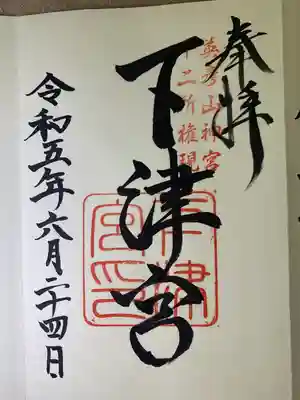 奉拝
英彦山神宮
十二所権現
下津宮
下津宮印
令和五年六月二十四日